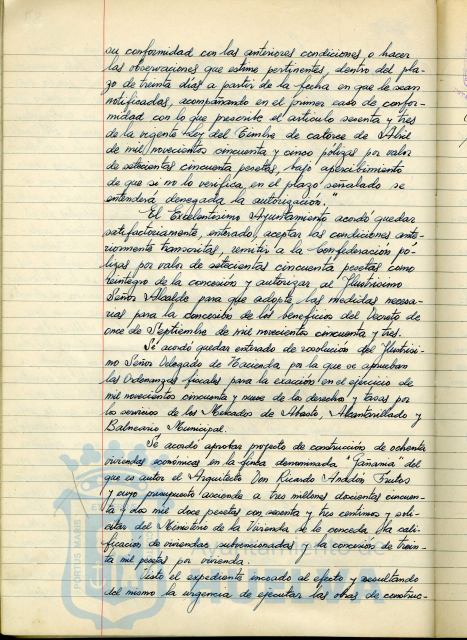 su conformidad con las anteriores condiciones, o hacer
las observaciones que estime pertinentes, dentro del pla-
zo de treinta dias a partir de la fecha en que le sean
notificadas, acompañando en el primer caso de confor-
midad con lo que prescribe el articulo sesenta y tres
de la vigente Ley del Timbre de catorce de Abril
de mil novecientos cincuenta y cinco pólizas por valor
de setecientas cincuenta pesetas, bajo apercibimiento
de que se no lo verifica, en el plazo señalado se
entenderá denegada la autorización."
El Excelentisimo Ayuntamiento acordó quedar
satisfactoriamente, enterado, aceptar las condiciones ante-
riormente transcritas, remitir a la Confederación pó-
lizas por valor de setecientas cincuenta pesetas como
reintegro de la concesión y autorizar al Ilustrisimo
Señor Alcalde para que adopte las medidas necesa-
rias para la concesión de los beneficios del Decreto de
once de Septiembre de mil novecientos cincuenta y tres.
Se acordó quedar enterado de resolución del Ilustrisi-
mo Señor Delegado de Hacienda por la que se aprueban
las Ordenanzas fiscales para la exacción en el ejercicio de
mil novecientos cincuenta y nueve de los derechos y tasas por
los servicios de los Mercados de Abasto, Alcantarillado y
Balneario Municipal.
Se acordó aprobar proyecto de construcción de ochenta
viviendas económicas en la finca denominada "Gañania" del
que es autor el Arquitecto Don Ricardo Anadón Frutos
y cuyo presupuesto asciende a tres millones doscientas cincuen-
ta y dos mil doce pesetas con sesenta y tres centimos y soli-
citar del Ministerio de la Vivienda de le conceda la cali-
ficación de viviendas subvencionadas y la concesión de trein-
ta mil pesetas por vivienda.
Visto el expediente incoado al efecto y resultando
del mismo la urgencia de ejecutar las obras de construc-
PORTUS MARIS
Ayuntamiento
HUELVA